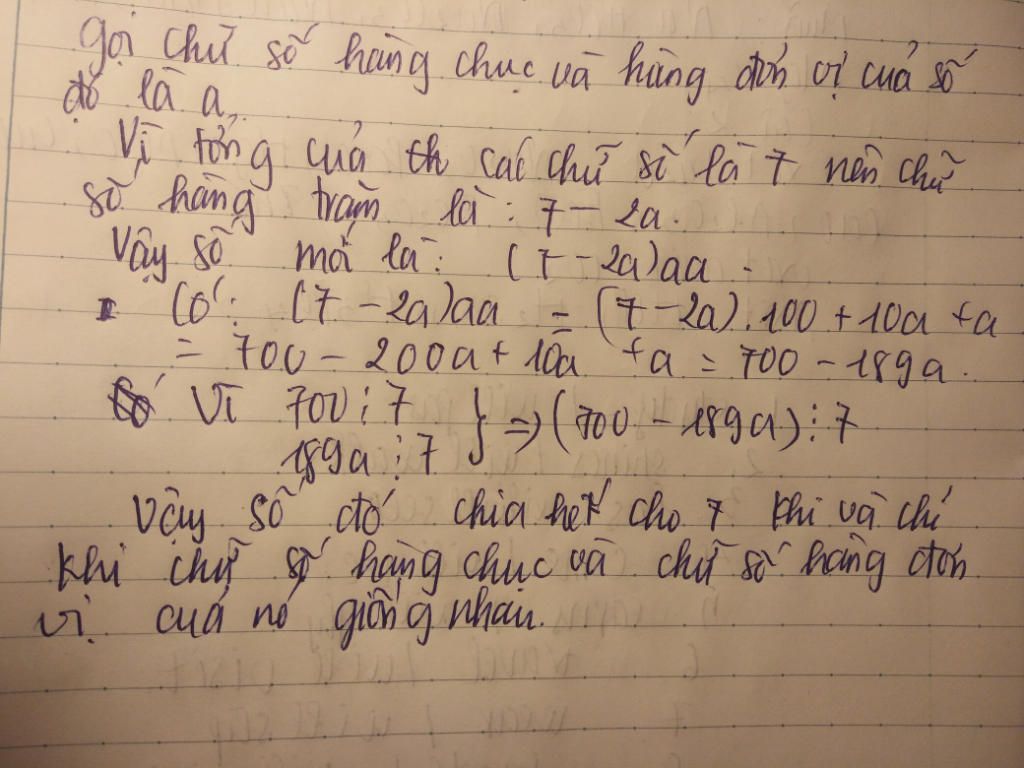 Gọi chữ số hàng chục và hàng đơn vị của số
đó là a,
Vì tổng của th các chữ số là 7 nên chữ
số hàng trăm là: 7 - 2a.
Vậy số mới là: (7 - 2a)aa.
Có: (7 - 2a)aa = (7 - 2a).100 + 10a + a
= 700 - 200a + 10a + a = 700 - 189a.
Vì 700 ⋮ 7
189a ⋮ 7 } => (700 - 189a) ⋮ 7
Vậy số đó chia hết cho 7 khi và chỉ
khi chữ số hàng chục và chữ số hàng đơn
vị của nó giống nhau.